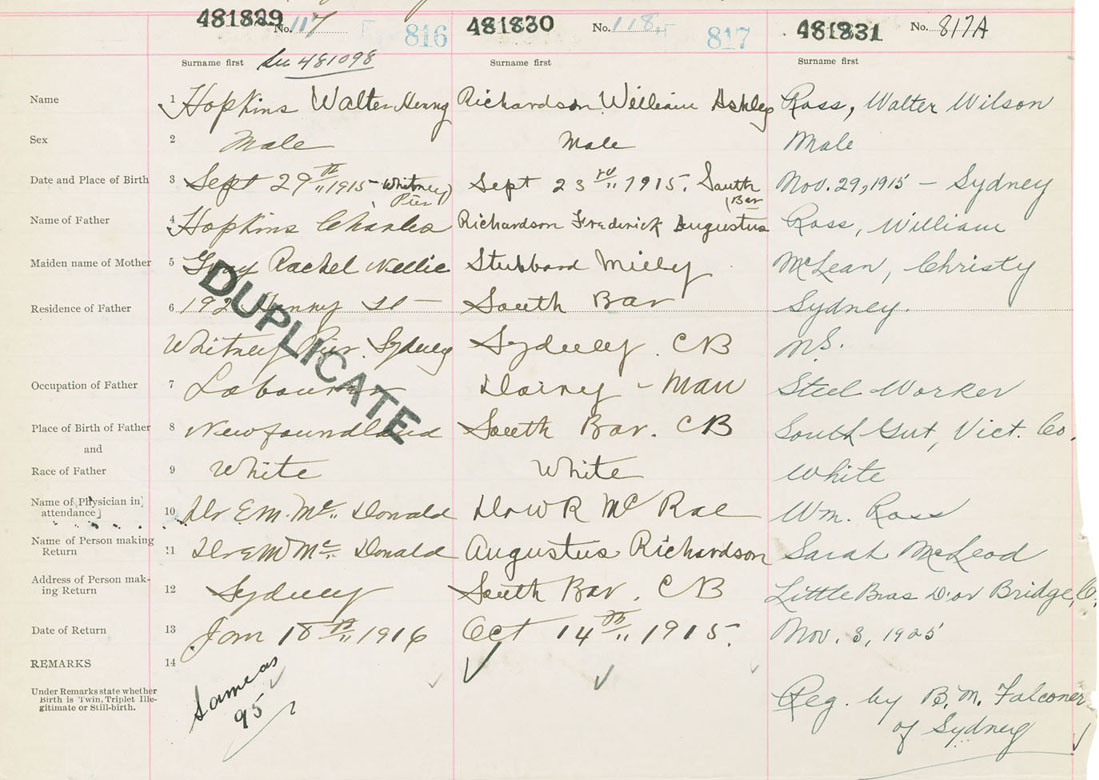 481829 No. 117 816 481830 No. 118 817 481831 No. 817A
Surname first See 481098 Surname first Surname first
Name 1 Hopkins Walter Henry Richardson William Ashley Ross, Walter Wilson
Sex 2 Male Male Male
Date and Place of Birth 3 Sept 29th 1915 - Whitney Pier Sept 23rd 1915. South Bar Nov. 29, 1915 - Sydney
Name of Father 4 Hopkins Charles Richardson Frederick Augustus Ross, William
Maiden name of Mother 5 Rachel Nellie Stubbard Milly McLean, Christy
Residence of Father 6 192 Henry St - South Bar Sydney.
Whitney Pier. Sydney Sydney. CB N.S.
Occupation of Father 7 Labourer Dairy - Man Steel Worker
Place of Birth of Father 8 Newfoundland South Bar. CB South Gut, Vict. Co.
and
Race of Father 9 White White White
Name of Physician in
attendance 10 Dr E.M. Mc Donald Dr W R Mc Rae Wm. Ross
Name of Person making
Return 11 Dr E M Mc Donald Augustus Richardson Sarah McLeod
Address of Person mak-
ing Return 12 Sydney South Bar. CB Little Bras D'or Bridge, C.
Date of Return 13 Jan 18th 1916 Oct 14th 1915. Nov. 3, 1925
REMARKS 14
Under Remarks state whether
Birth is Twin, Triplet Ille-
gitimate or Still-birth.
Same as
95
Reg. by B. M. Falconer
of Sydney
DUPLICATE